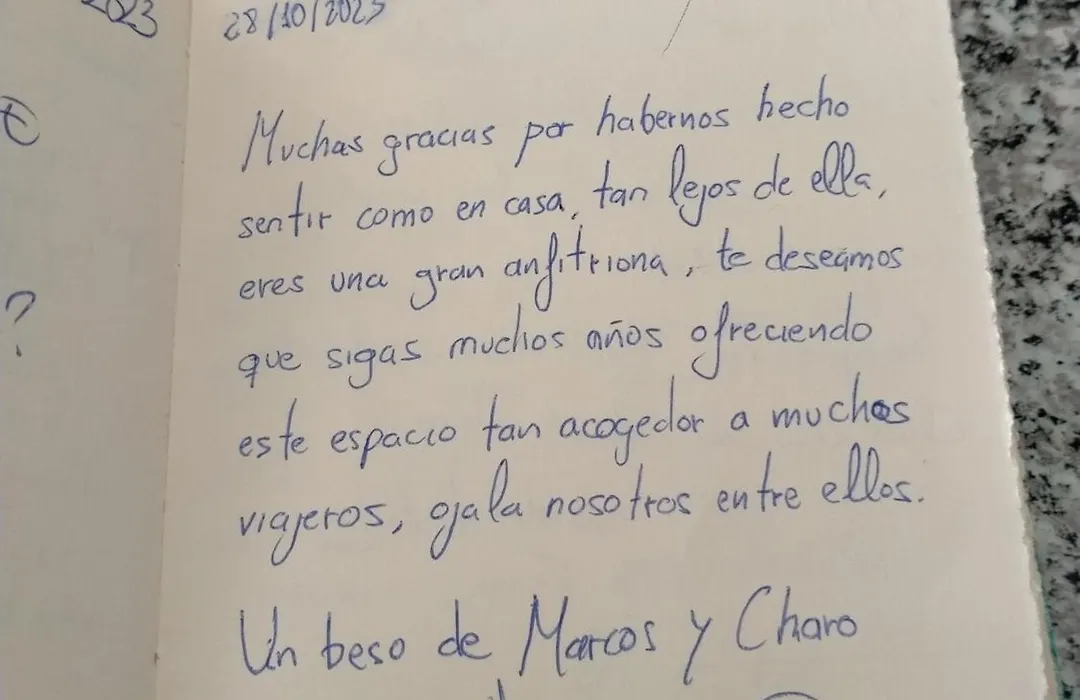 2023
28/10/2023
€
?
Muchas gracias por habernos hecho
sentir como en casa, tan lejos de ella,
eres una gran anfitriona, te deseamos
que sigas muchos años ofreciendo
este espacio tan acogedor a muchos
viajeros, ojala nosotros entre ellos.
Un beso de Marcos y Charo